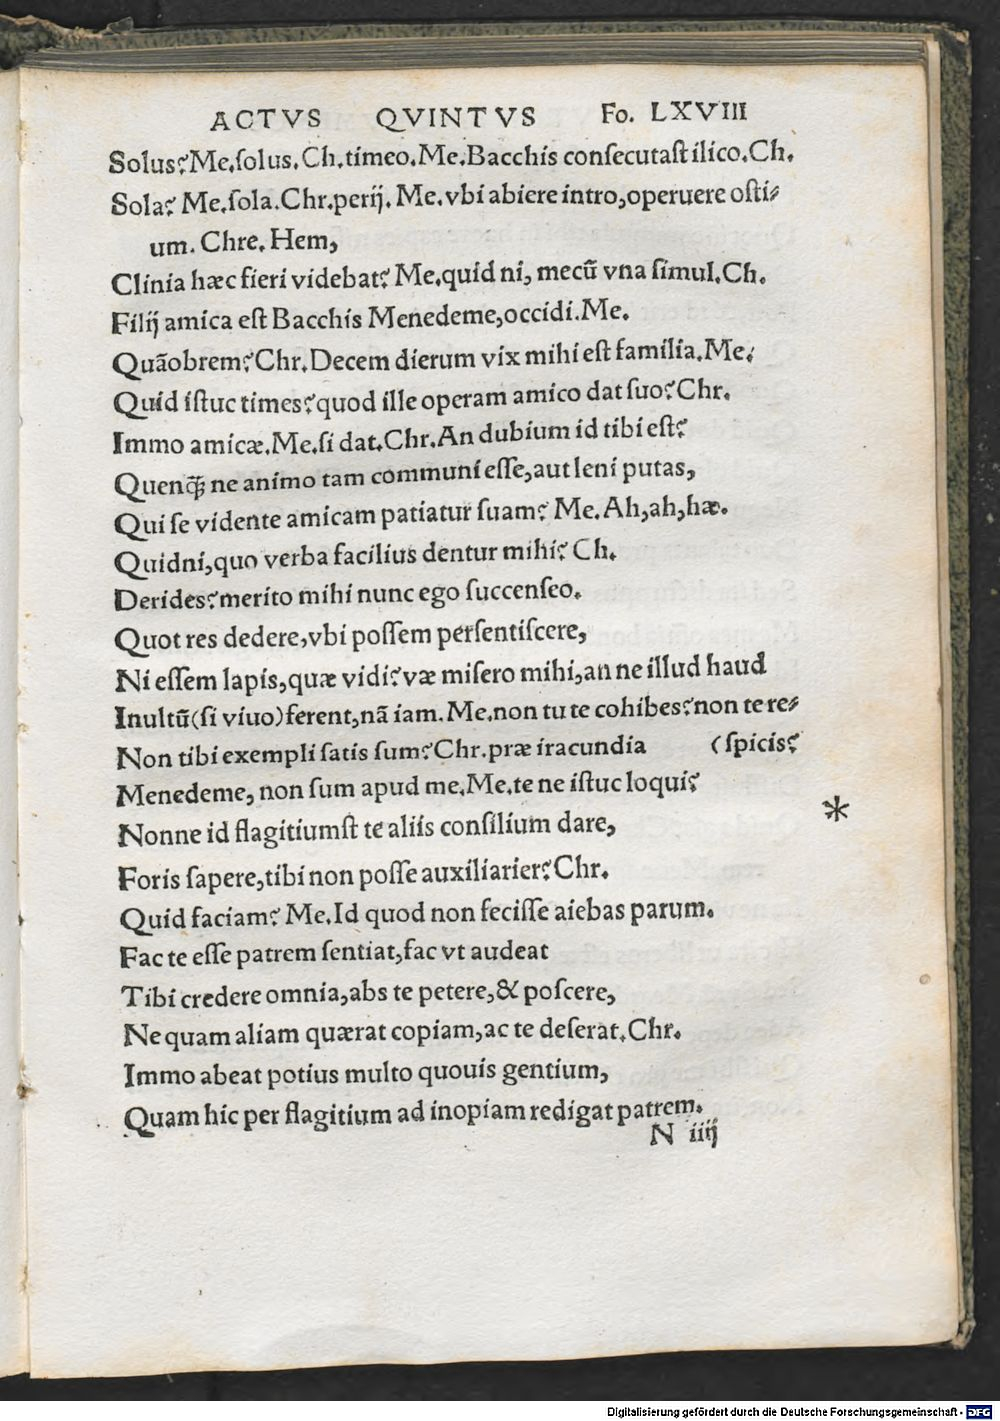 ACTVS QVINTVS Fo. LXVIII
Solus? Me. ſolus. Ch. timeo. Me. Bacchis conſecutaſt ilico. Ch.
Sola? Me. ſola. Chr. perij. Me. vbi abiere intro, operuere oſti-
um. Chre. Hem,
Clinia hæc fieri videbat? Me. quid ni, mecũ vna ſimul. Ch.
Filij amica eſt Bacchis Menedeme, occidi. Me.
Quãobrem? Chr. Decem dierum vix mihi eſt familia. Me.
Quid iſtuc times? quod ille operam amico dat ſuo? Chr.
Immo amicæ. Me. ſi dat. Chr. An dubium id tibi eſt?
Quenq̃ ne animo tam communi eſſe, aut leni putas,
Qui ſe vidente amicam patiatur ſuam? Me. Ah, ah, hæ.
Quidni, quo verba facilius dentur mihi? Ch.
Derides? merito mihi nunc ego ſuccenſeo.
Quot res dedere, vbi poſſem perſentiſcere,
Ni eſſem lapis, quæ vidi? væ miſero mihi, an ne illud haud
Inultũ (ſi viuo) ferent, nã iam. Me. non tu te cohibes? non te re-
Non tibi exempli ſatis ſum? Chr. præ iracundia (ſpicis?
Menedeme, non ſum apud me. Me. te ne iſtuc loqui?
Nonne id flagitiumſt te aliis conſilium dare, *
Foris ſapere, tibi non poſſe auxiliarier? Chr.
Quid faciam? Me. Id quod non feciſſe aiebas parum.
Fac te eſſe patrem ſentiat, fac vt audeat
Tibi credere omnia, abs te petere, & poſcere,
Ne quam aliam quærat copiam, ac te deſerat. Chr.
Immo abeat potius multo quouis gentium,
Quam hic per flagitium ad inopiam redigat patrem.
N iiij
Digitalisierung gefördert durch die Deutsche Forschungsgemeinschaft - DFG